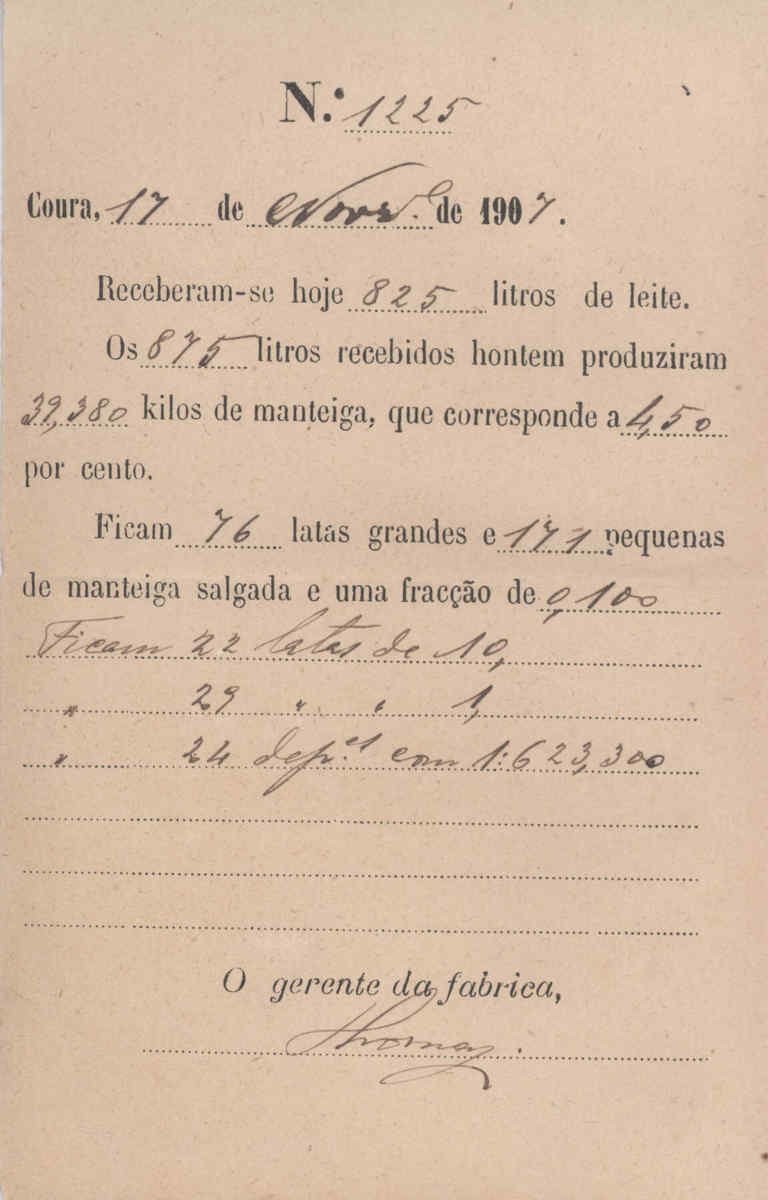 N.º 1225
Coura, 17 de Novr.º de 1907.
Receberam-se hoje 825 litros de leite.
Os 875 litros recebidos hontem produziram
39,380 kilos de manteiga, que corresponde a 4,50
por cento.
Ficam 76 latas grandes e 171 pequenas
de manteiga salgada e uma fracção de 0,100
Ficam 22 latas de 10,
" 29 " " 1,
" 24 dep.es com 1:623,300
O gerente da fabrica,
Thomaz